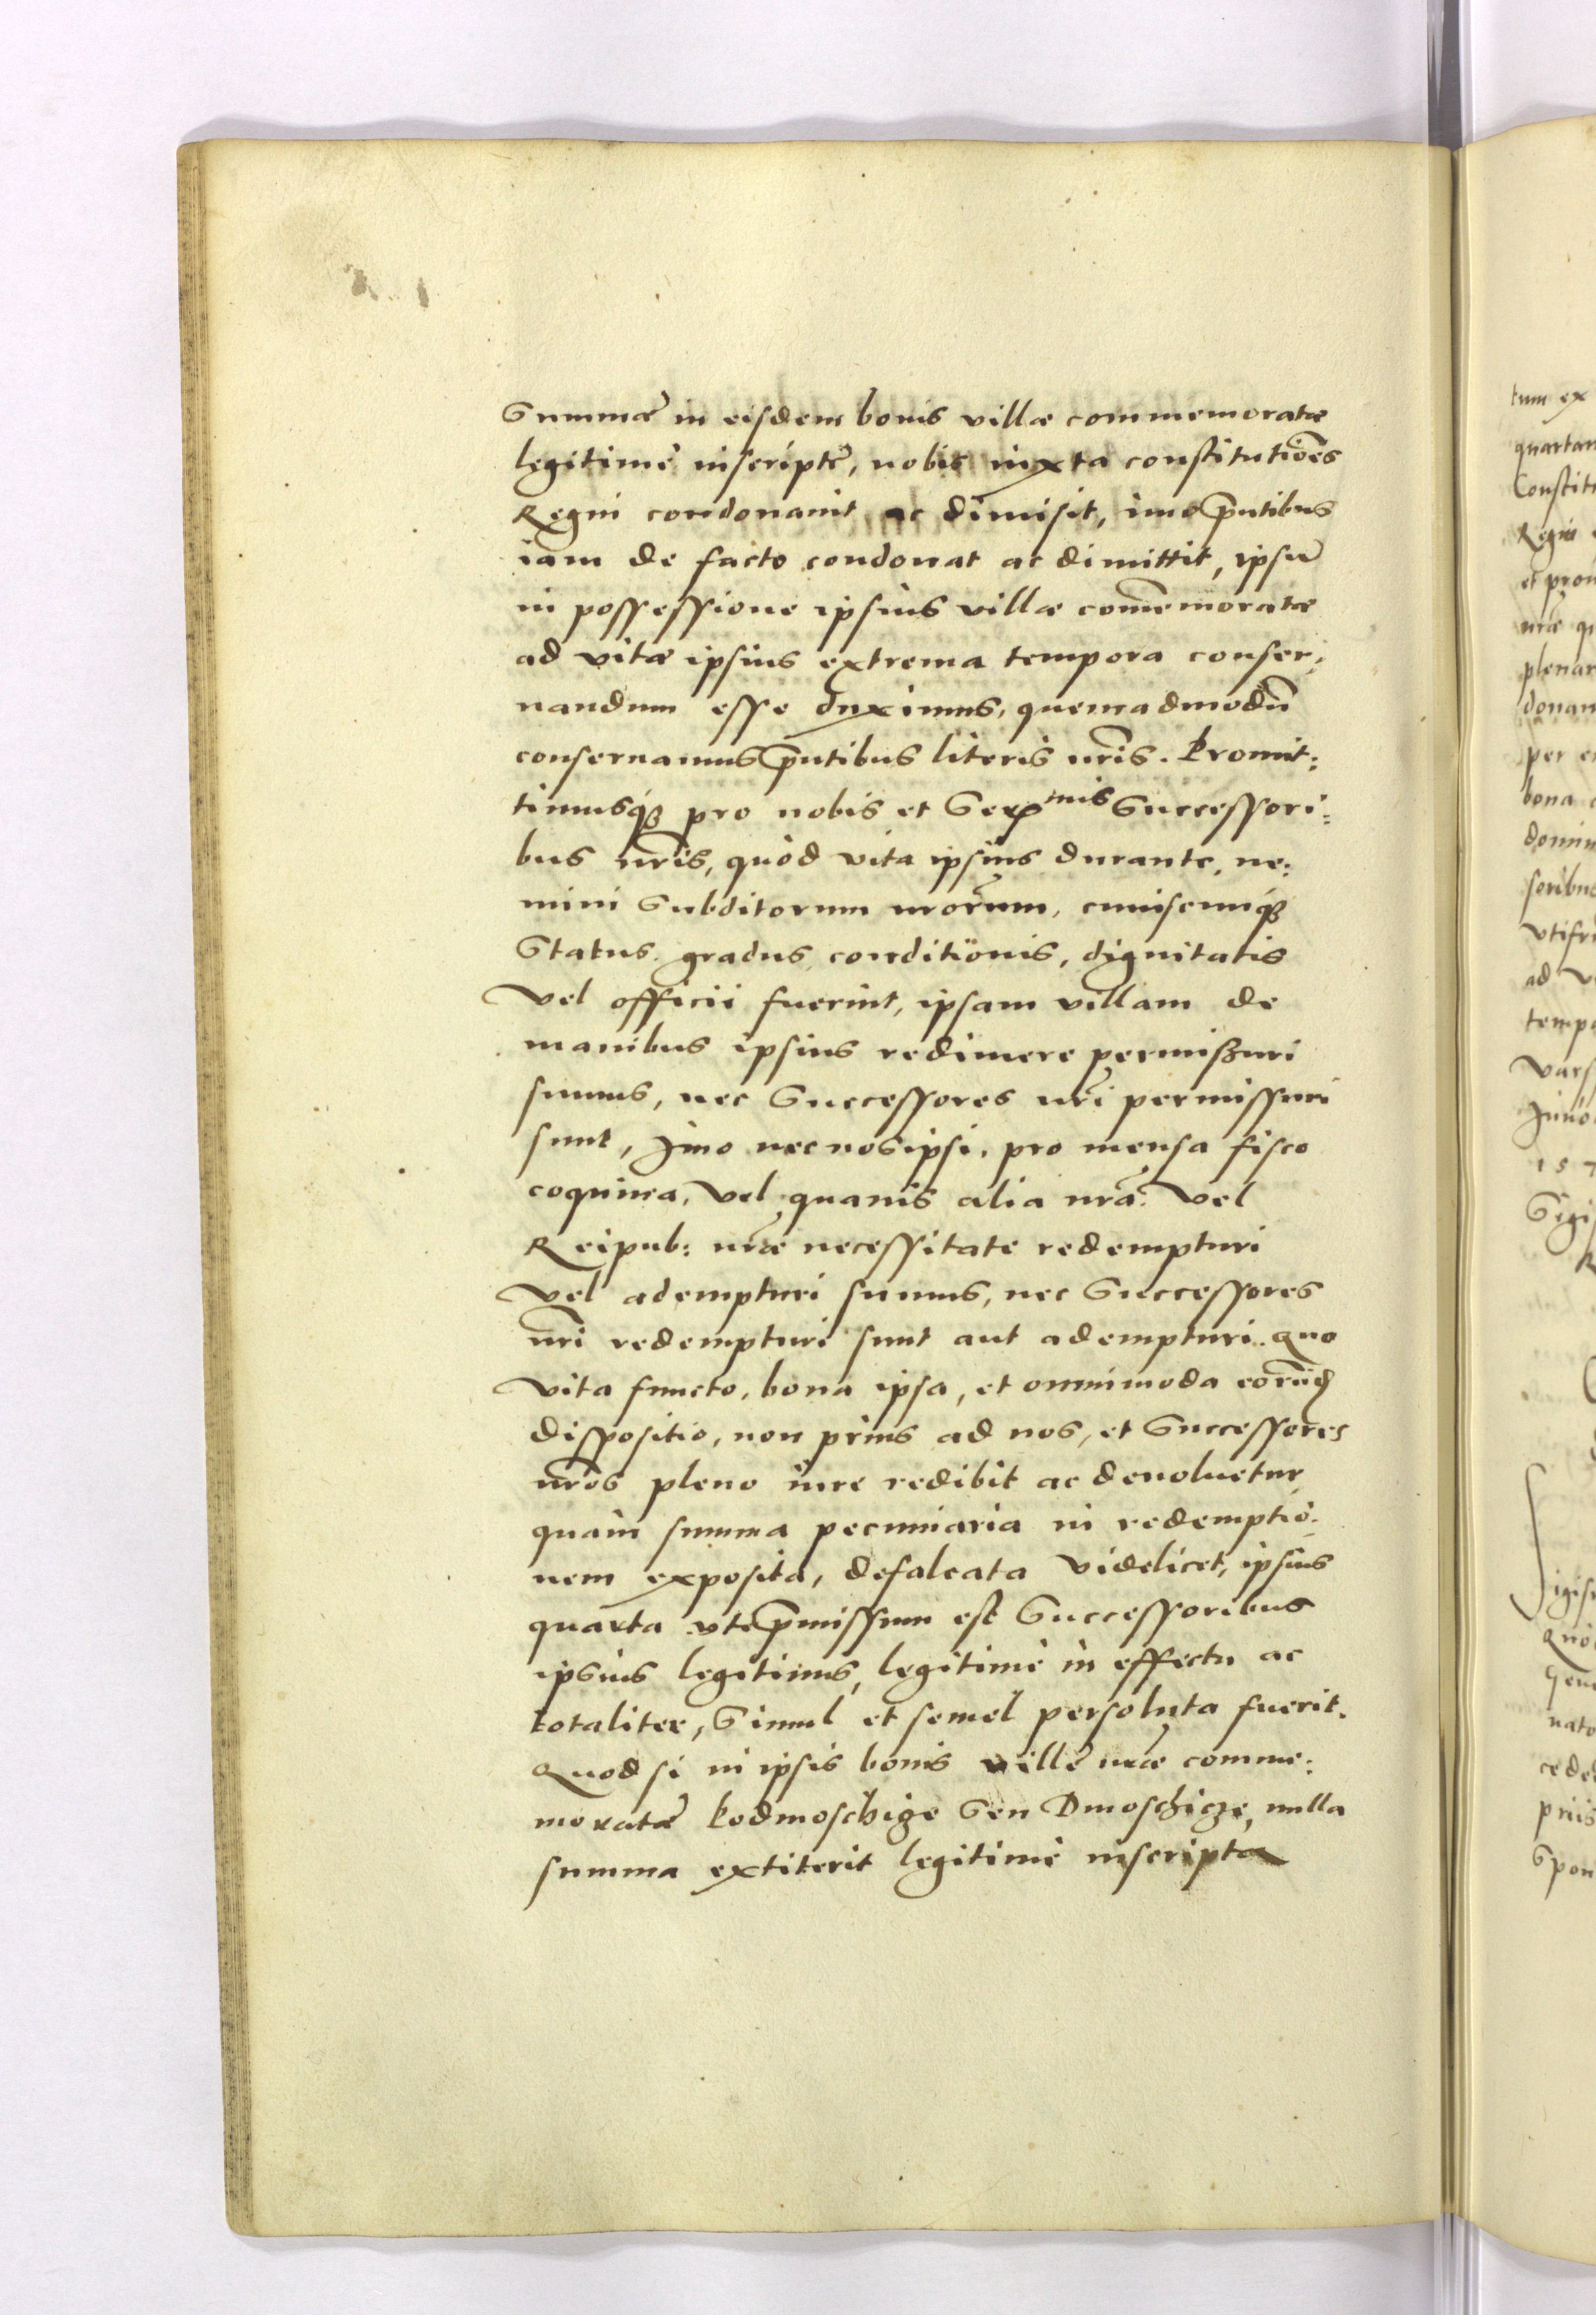 Summæ in eisdem bonis villæ commemoratæ
legitimè inscriptæ, nobis iuxta constitutiões
Regni condonauit ac dimisit, imo p̄ntibus
iam de facto condonat ac dimittit, ipsū
in possessione ipsius villæ com̄emoratæ
ad vitæ ipsius extrema tempora conser,
uandum esse duximus, quemadmodū
conseruamus p̄ntibus literis nr̄is. Promit:
timusq; pro nobis et Ser^mis Successori:
bus nr̄is, quòd vita ipsius durante, ne:
mini Subditorum nrōrum, cuiuscunq;
Status. gradus, conditionis, dignitatis
Vel officii fuerint, ipsam villam de
manibus ipsius redimere permißuri
sumus, nec Successores nr̄i permissuri
sunt, Imo nec nos ipsi, pro mensa fisco
coquina, Vel quauis alia nrā. Vel
Reipub: nr̄æ necessitate redempturi
Vel adempturi sumus, nec Successores
nr̄i redempturi sunt aut adempturi. quo
Vita functo, bona ipsa, et omnimoda eorūd
dispositio, non prius ad nos, et Successores
nr̄os pleno iure redibit ac deuoluetur,
quàm summa pecuniaria in redemptio:
nem exposita, defalcata Videlicet, ipsius
quarta vti p̄missum est Successoribus
ipsius legitimis, legitimè in effectu ac
totaliter, Simul et semel persoluta fuerit.
Quod si in ipsis bonis villæ nr̄æ comme:
moratæ Podmoschige Seu Dmoschicze, nulla
summa extiterit legitimè inscripta